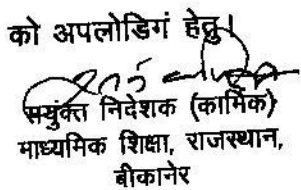 को अपलोडिगं हेतु।
सयुंक्त निदेशक (कार्मिक)
माध्यमिक शिक्षा, राजस्थान,
बीकानेर